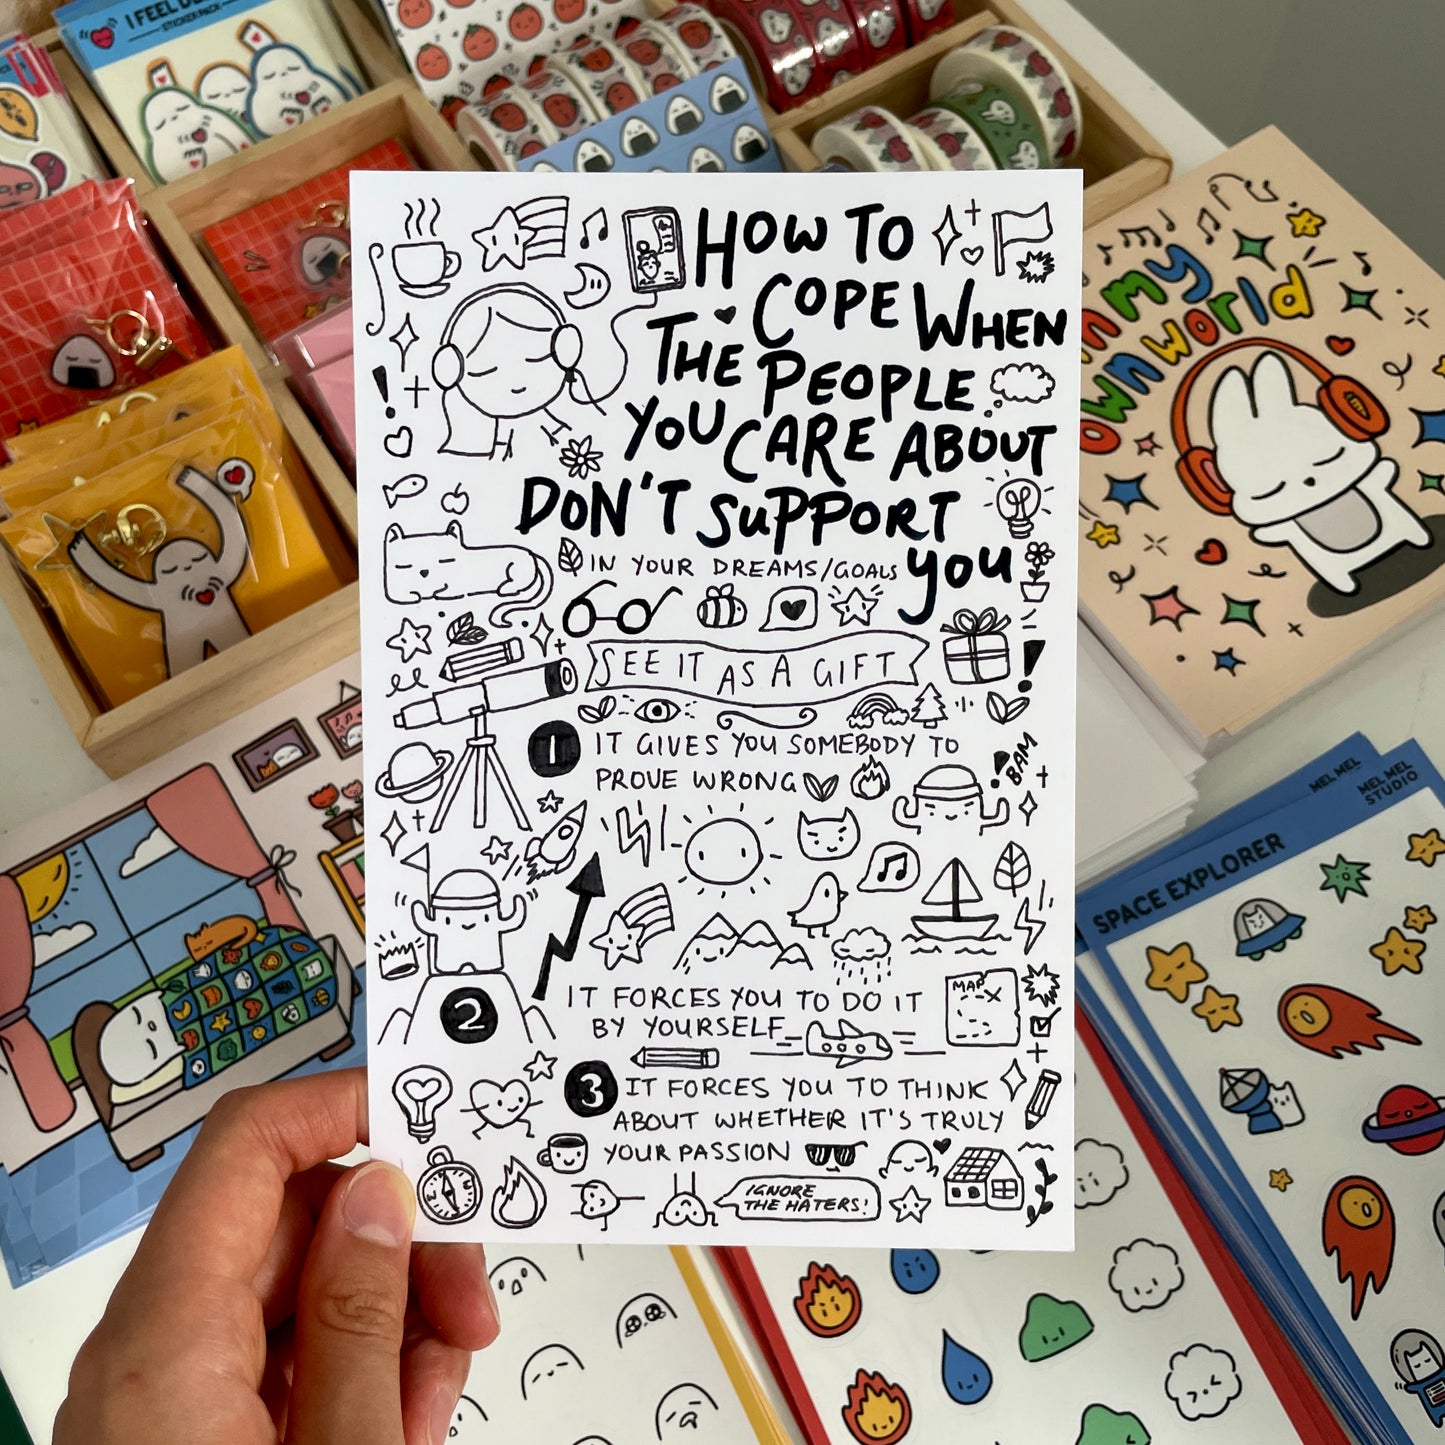 I FEEL
STICKER PACK
HOW TO
COPE WHEN
THE PEOPLE
YOU CARE ABOUT
DON'T SUPPORT
YOU
IN YOUR DREAMS/GOALS
SEE IT AS A GIFT
1 IT GIVES YOU SOMEBODY TO
PROVE WRONG
BAM
2 IT FORCES YOU TO DO IT
BY YOURSELF
MAP
3 IT FORCES YOU TO THINK
ABOUT WHETHER IT'S TRULY
YOUR PASSION
IGNORE
THE HATERS!
my
own world
MEL MEL
MEL MEL
STUDIO
SPACE EXPLORER